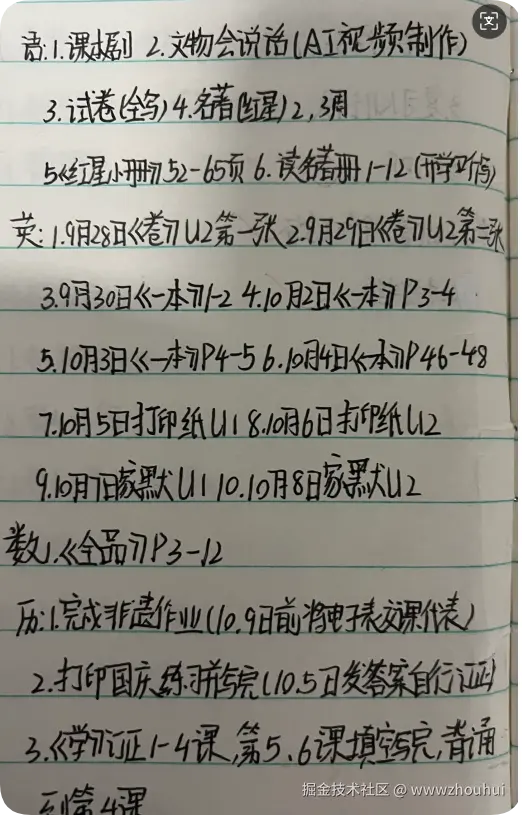 语:1.课本剧 2.文物会说话(AI视频制作)
3.试卷(全写)4.名著(红星)2,3周
5《红星小册》52-65页 6.读名著册1-12(开学写作)
英:1.9月28日《卷》U2第一张 2.9月29日《卷》U2第二张
3.9月30日《一本》1-2 4.10月2日《一本》P3-4
5.10月3日《一本》P4-5 6.10月4日《一本》P46-48
7.10月5日打印纸U1 8.10月6日打印纸U2
9.10月7日家默U1 10.10月8日家默U2
数1.《全品》P3-12
历:1.完成非遗作业(10.9日前将电子表交课代表)
2.打印国庆练习并写完(10.5日发答案自行订正)
3.《学》订正1-4课,第5、6课填空写完,背诵
到第4课
掘金技术社区 @ wwwzhouhui